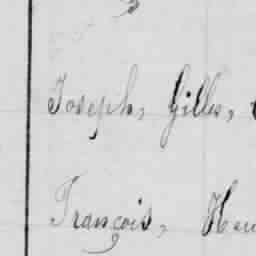 Joseph, Gilles,
François,